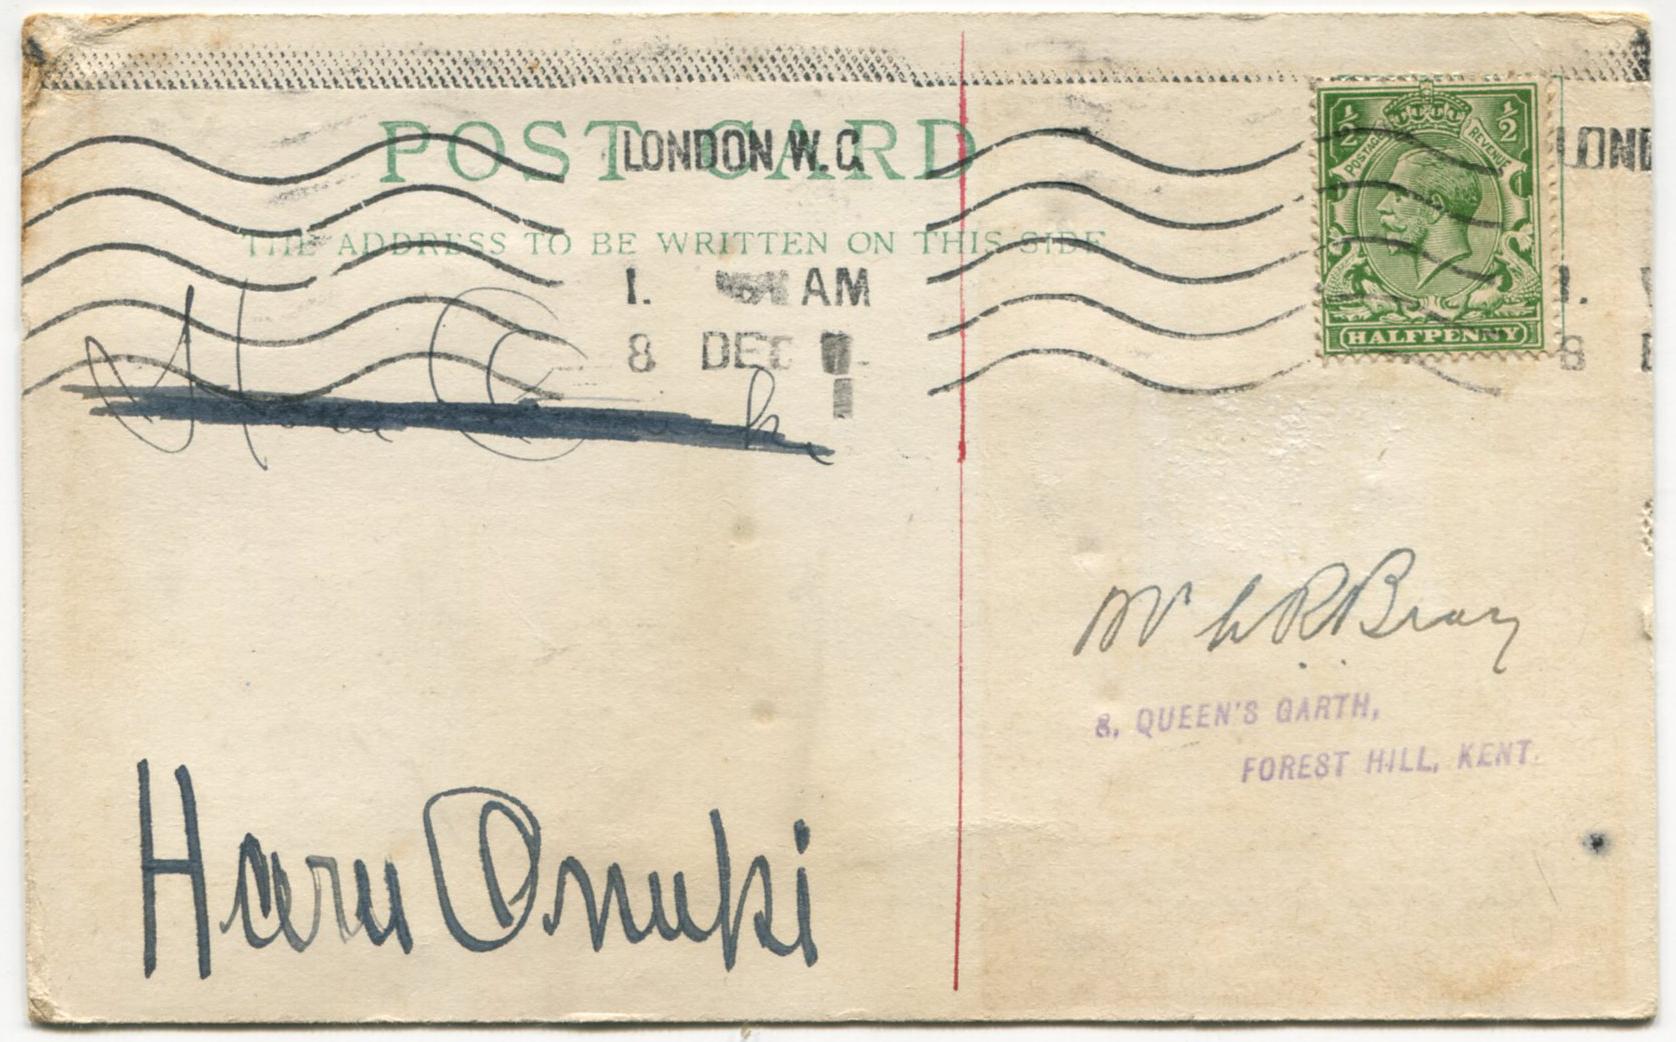 POST CARD
THE ADDRESS TO BE WRITTEN ON THIS SIDE
LONDON W.C.
1. AM
8 DEC
½ ½
POSTAGE REVENUE
HALFPENNY
LOND
1.
8
Haru Onuki
Haru Onuki
Mr W R Bray
8, QUEEN'S GARTH,
FOREST HILL, KENT.